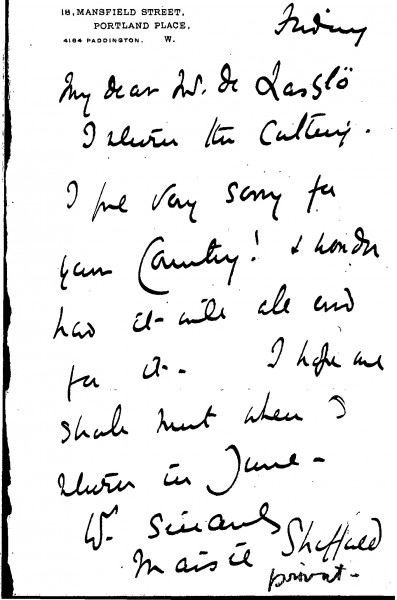 18, MANSFIELD STREET,
PORTLAND PLACE,
4184 PADDINGTON. W.
Friday
My dear Mr. de László
I return the Cutting.
I feel very sorry for
your Country! & wonder
how it will all end
for it - I hope we
shall meet when I
return in June -
Yr. Sincerely
Maisie Sheffield
private -